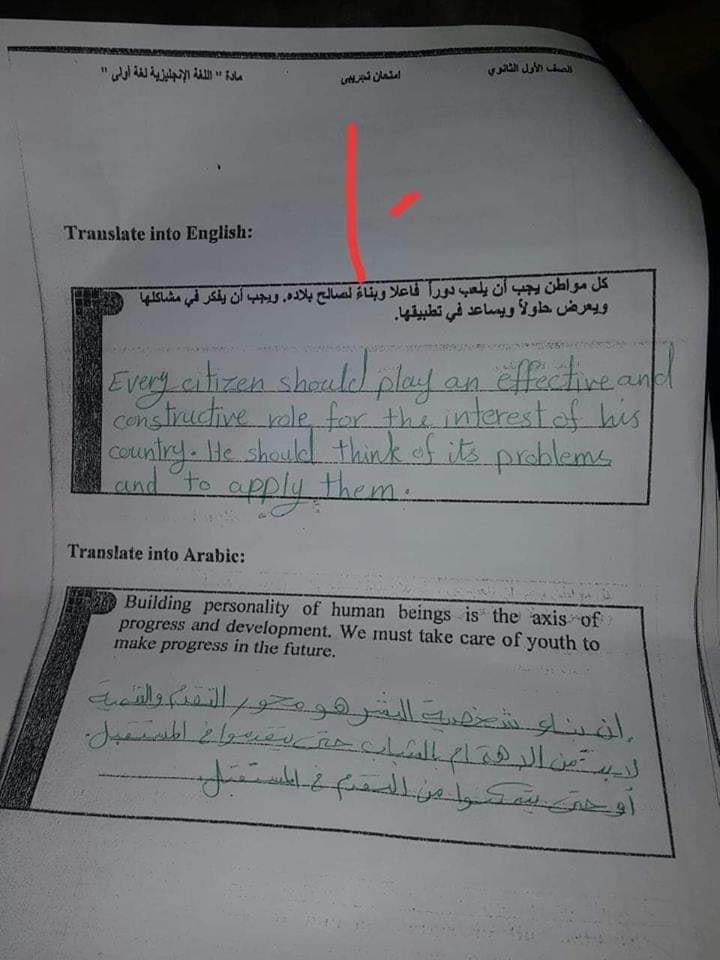 الصف الأول الثانوي
امتحان تجريبى
مادة " اللغة الإنجليزية لغة أولى "
Translate into English:
كل مواطن يجب أن يلعب دوراً فاعلا وبناءً لصالح بلاده. ويجب أن يفكر في مشاكلها
ويعرض حلولاً ويساعد في تطبيقها.
Every citizen should play an effective and
constructive role for the interest of his
country. He should think of its problems
and to apply them.
Translate into Arabic:
26 Building personality of human beings is the axis of
progress and development. We must take care of youth to
make progress in the future.
إن بناء شخصية البشر هو محور التقدم والتنمية
لابد من الاهتمام بالشباب حتى يتقدموا في المستقبل.
أو حتى يتمكنوا من التقدم في المستقبل.